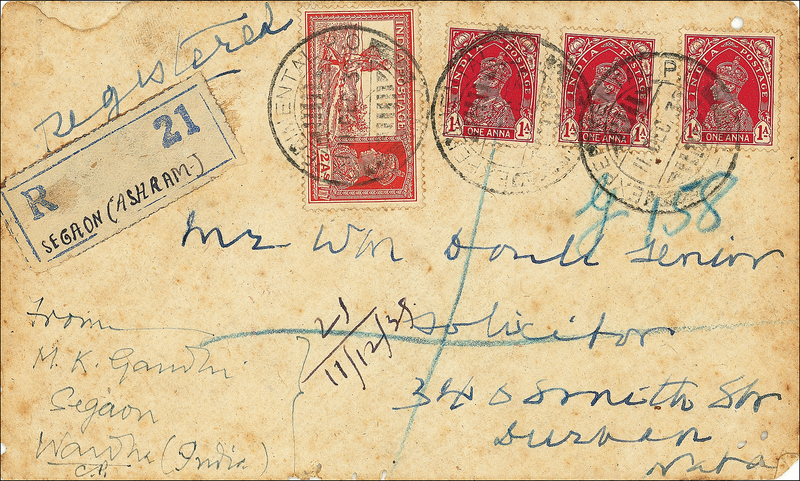 Registered
R 21
SEGAON (ASHRAM)
INDIA POSTAGE
2AS
INDIA POSTAGE
1A 1A
ONE ANNA
INDIA POSTAGE
1A 1A
ONE ANNA
INDIA POSTAGE
1A 1A
ONE ANNA
158
Mr Wm Doull Senior
Solicitor
Smith Str
Durban
Natal
21
11/12/38
From
M. K. Gandhi
Segaon
Wardha (India)
C.P.